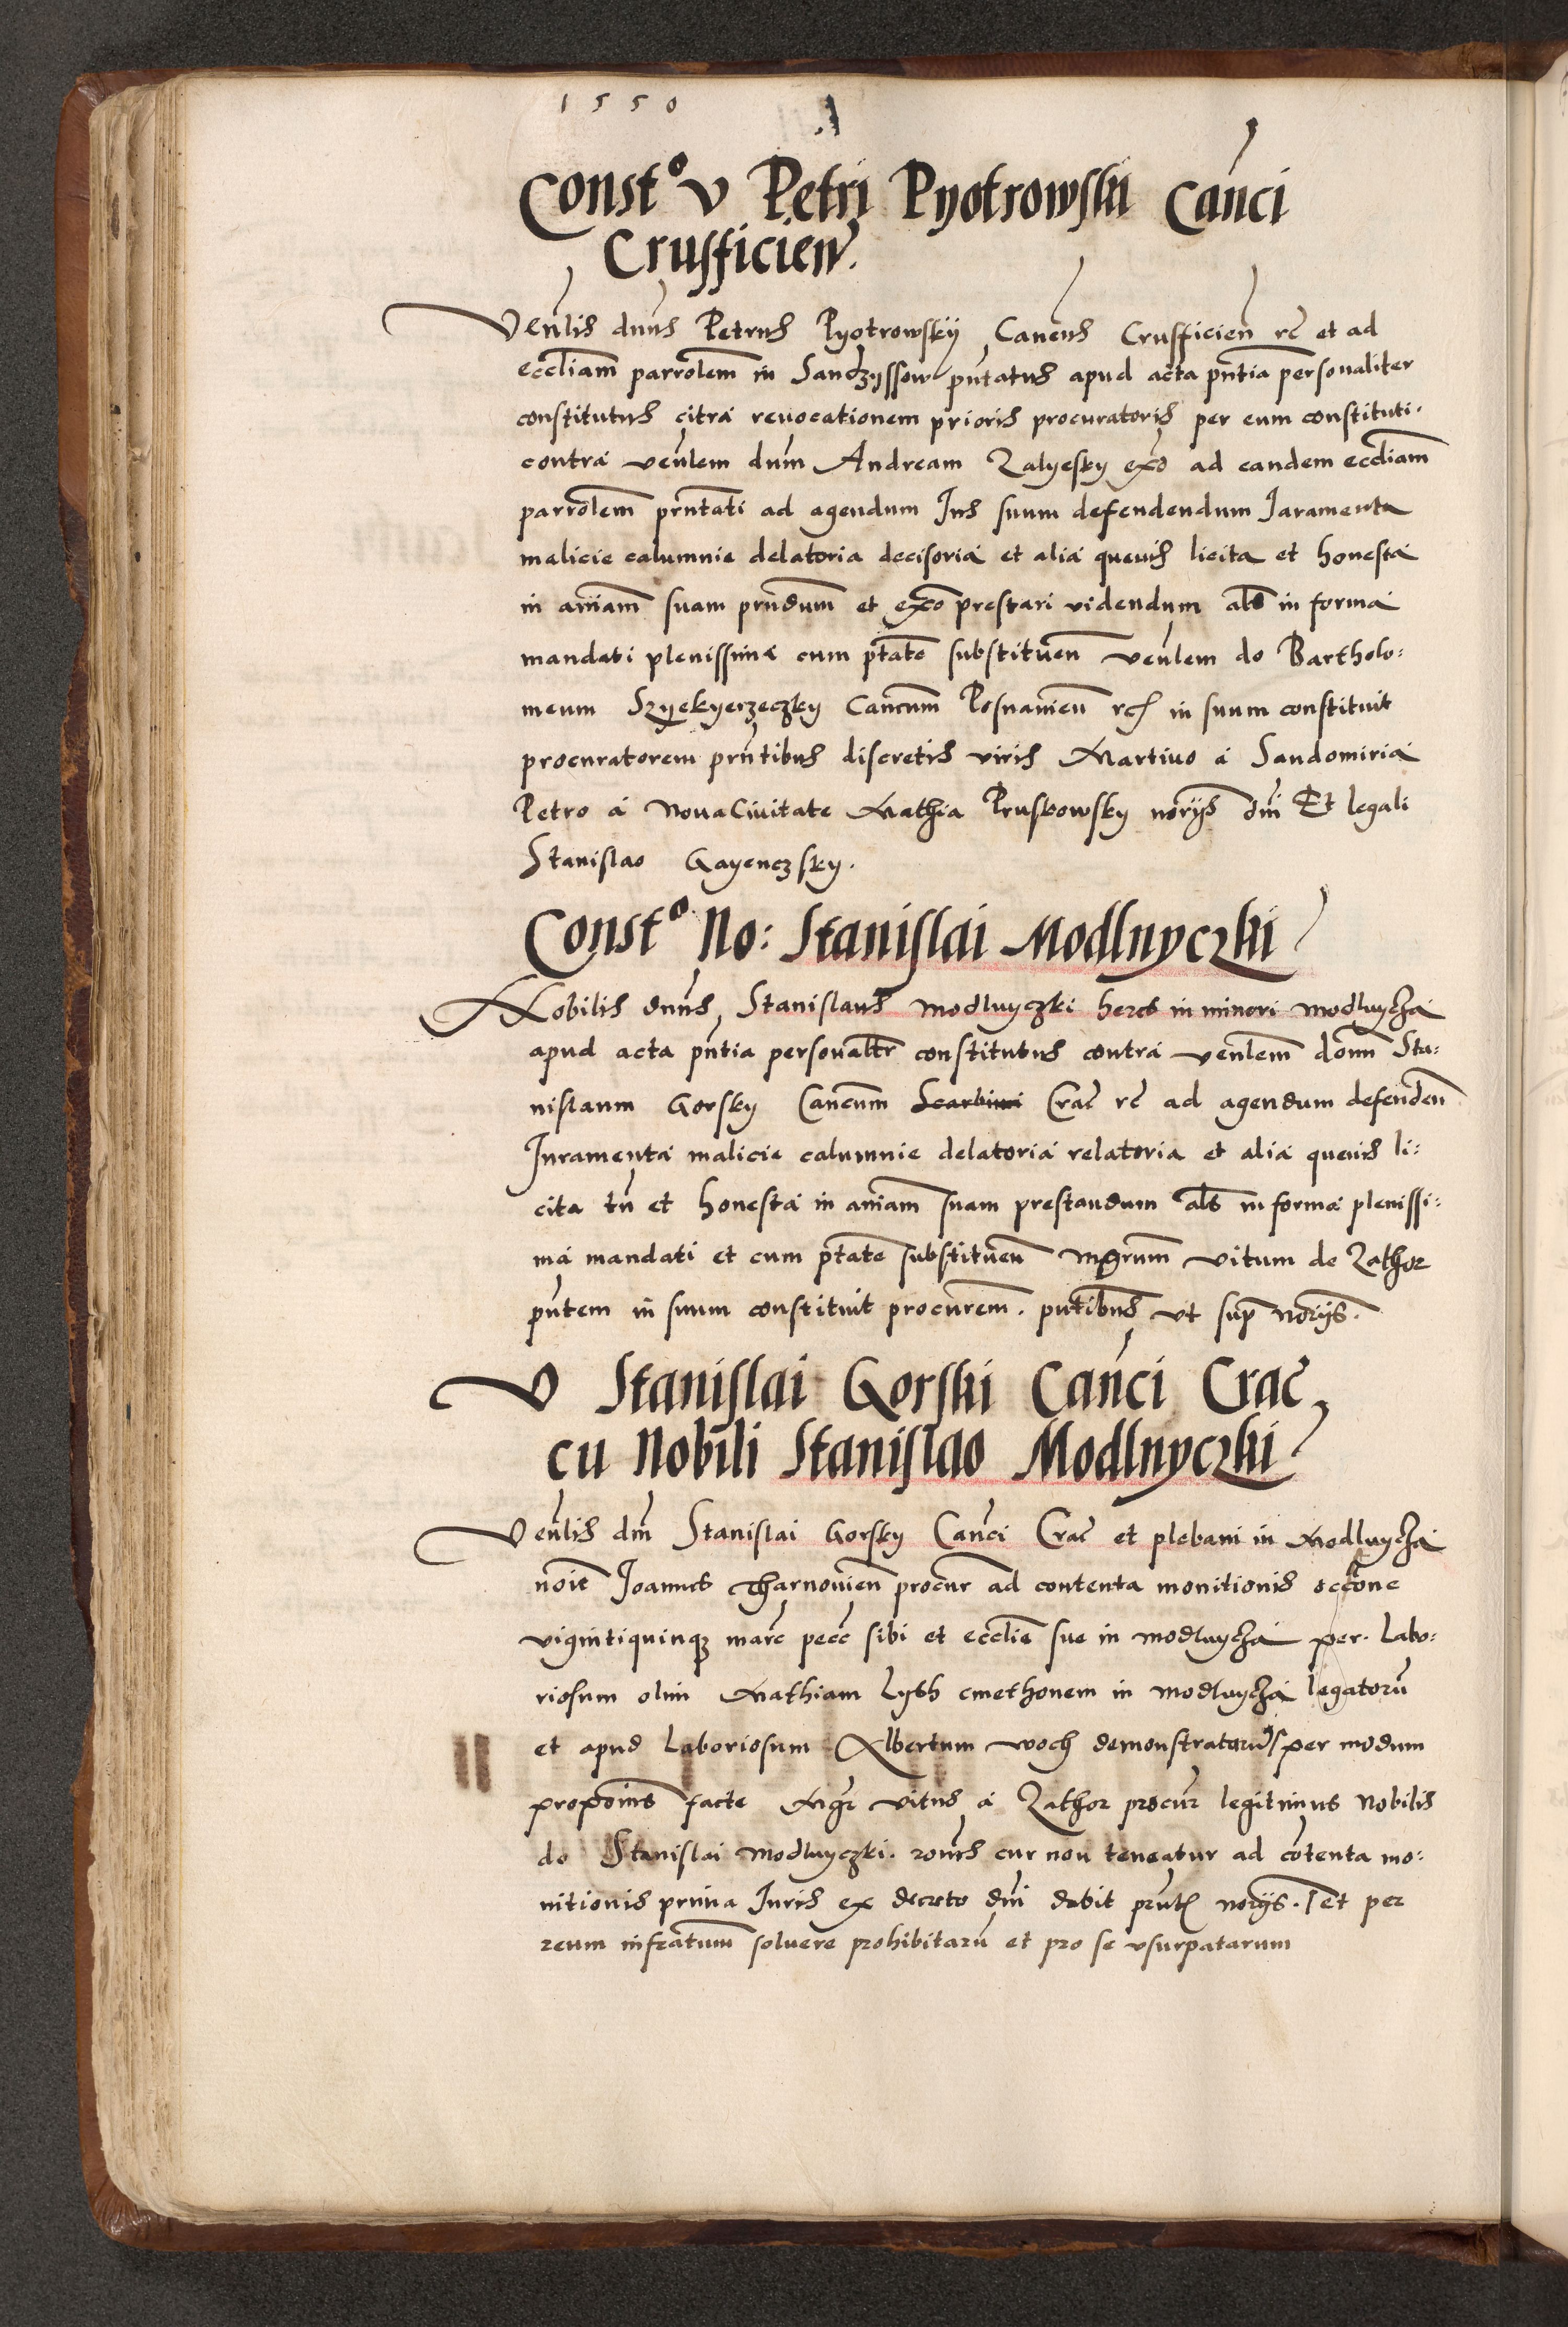 1550
Constº V Petri Pyotrowski Canci
Crusficien.
Venlis dnus Petrus Pyotrowskij Cancus Crusficien rc et ad
eccliam parrolem in Sandzyssow pntatus apud acta pntia personaliter
constitutus citra reuocationem prioris procuratoris per eum constituti.
contra venlem dum Andream Zalyesky exo ad eandem eccliam
parrolem prntati ad agendum Ius suum defendendum Iuramenta
malicie calumnie delatoria decisoria et alia queuis licita et honesta
in aniam suam prndum et exo prestari videndum als in forma
mandati plenissima cum ptate substituen venlem do Bartholo:
meum Szyekyerzeczky Cancum Posnanien rc in suum constituit
procuratorem prntibus discretis viris Martino a Sandomiria
Petro a Noua Ciuitate Mathia Pruskowsky norijs dni Et legali
Stanislao Gayenczsky.
Constº No: Stanislai Modlnyczki
Nobilis dnus Stanislaus Modlnyczki heres in minori Modlnycza
apud acta pntia personaltr constitutus contra venlem donn Sta:
nislaum Gorsky Cancum Crac rc ad agendum defenden
Iuramenta malicie calumnie delatoria relatoria et alia queuis li:
cita tn et honesta in aniam suam prestandum als in forma plenissi:
ma mandati et cum ptate substituen mgrum vitum de Zathor
pntem in suum constituit procurem. pntibus vt sup norijs.
V Stanislai Gorski Canci Crac
cu Nobili Stanislao Modlnyczki
Venlis dni Stanislai Gorsky Canci Crac et plebani in Modlnycza
noie Joannis Tharnouien procur ad contenta monitionis occone
vigintiquinqz marc pecc sibi et ecclie sue in modlnycza per Labo:
riosum olim Mathiam Lyth cmethonem in modlnycza legatoru
et apud Laboriosum Albertum woch demonstratoru per modum
propoinis facte Mgr vitus a Zathor procur legitimus Nobilis
do Stanislai Modlnyczki. rouis cur non teneatur ad cotenta mo:
nitionis prima Iuris ex decreto dni dabit prnt norijs. et per
reum infratum soluere prohibitaru et pro se vsurpatarum